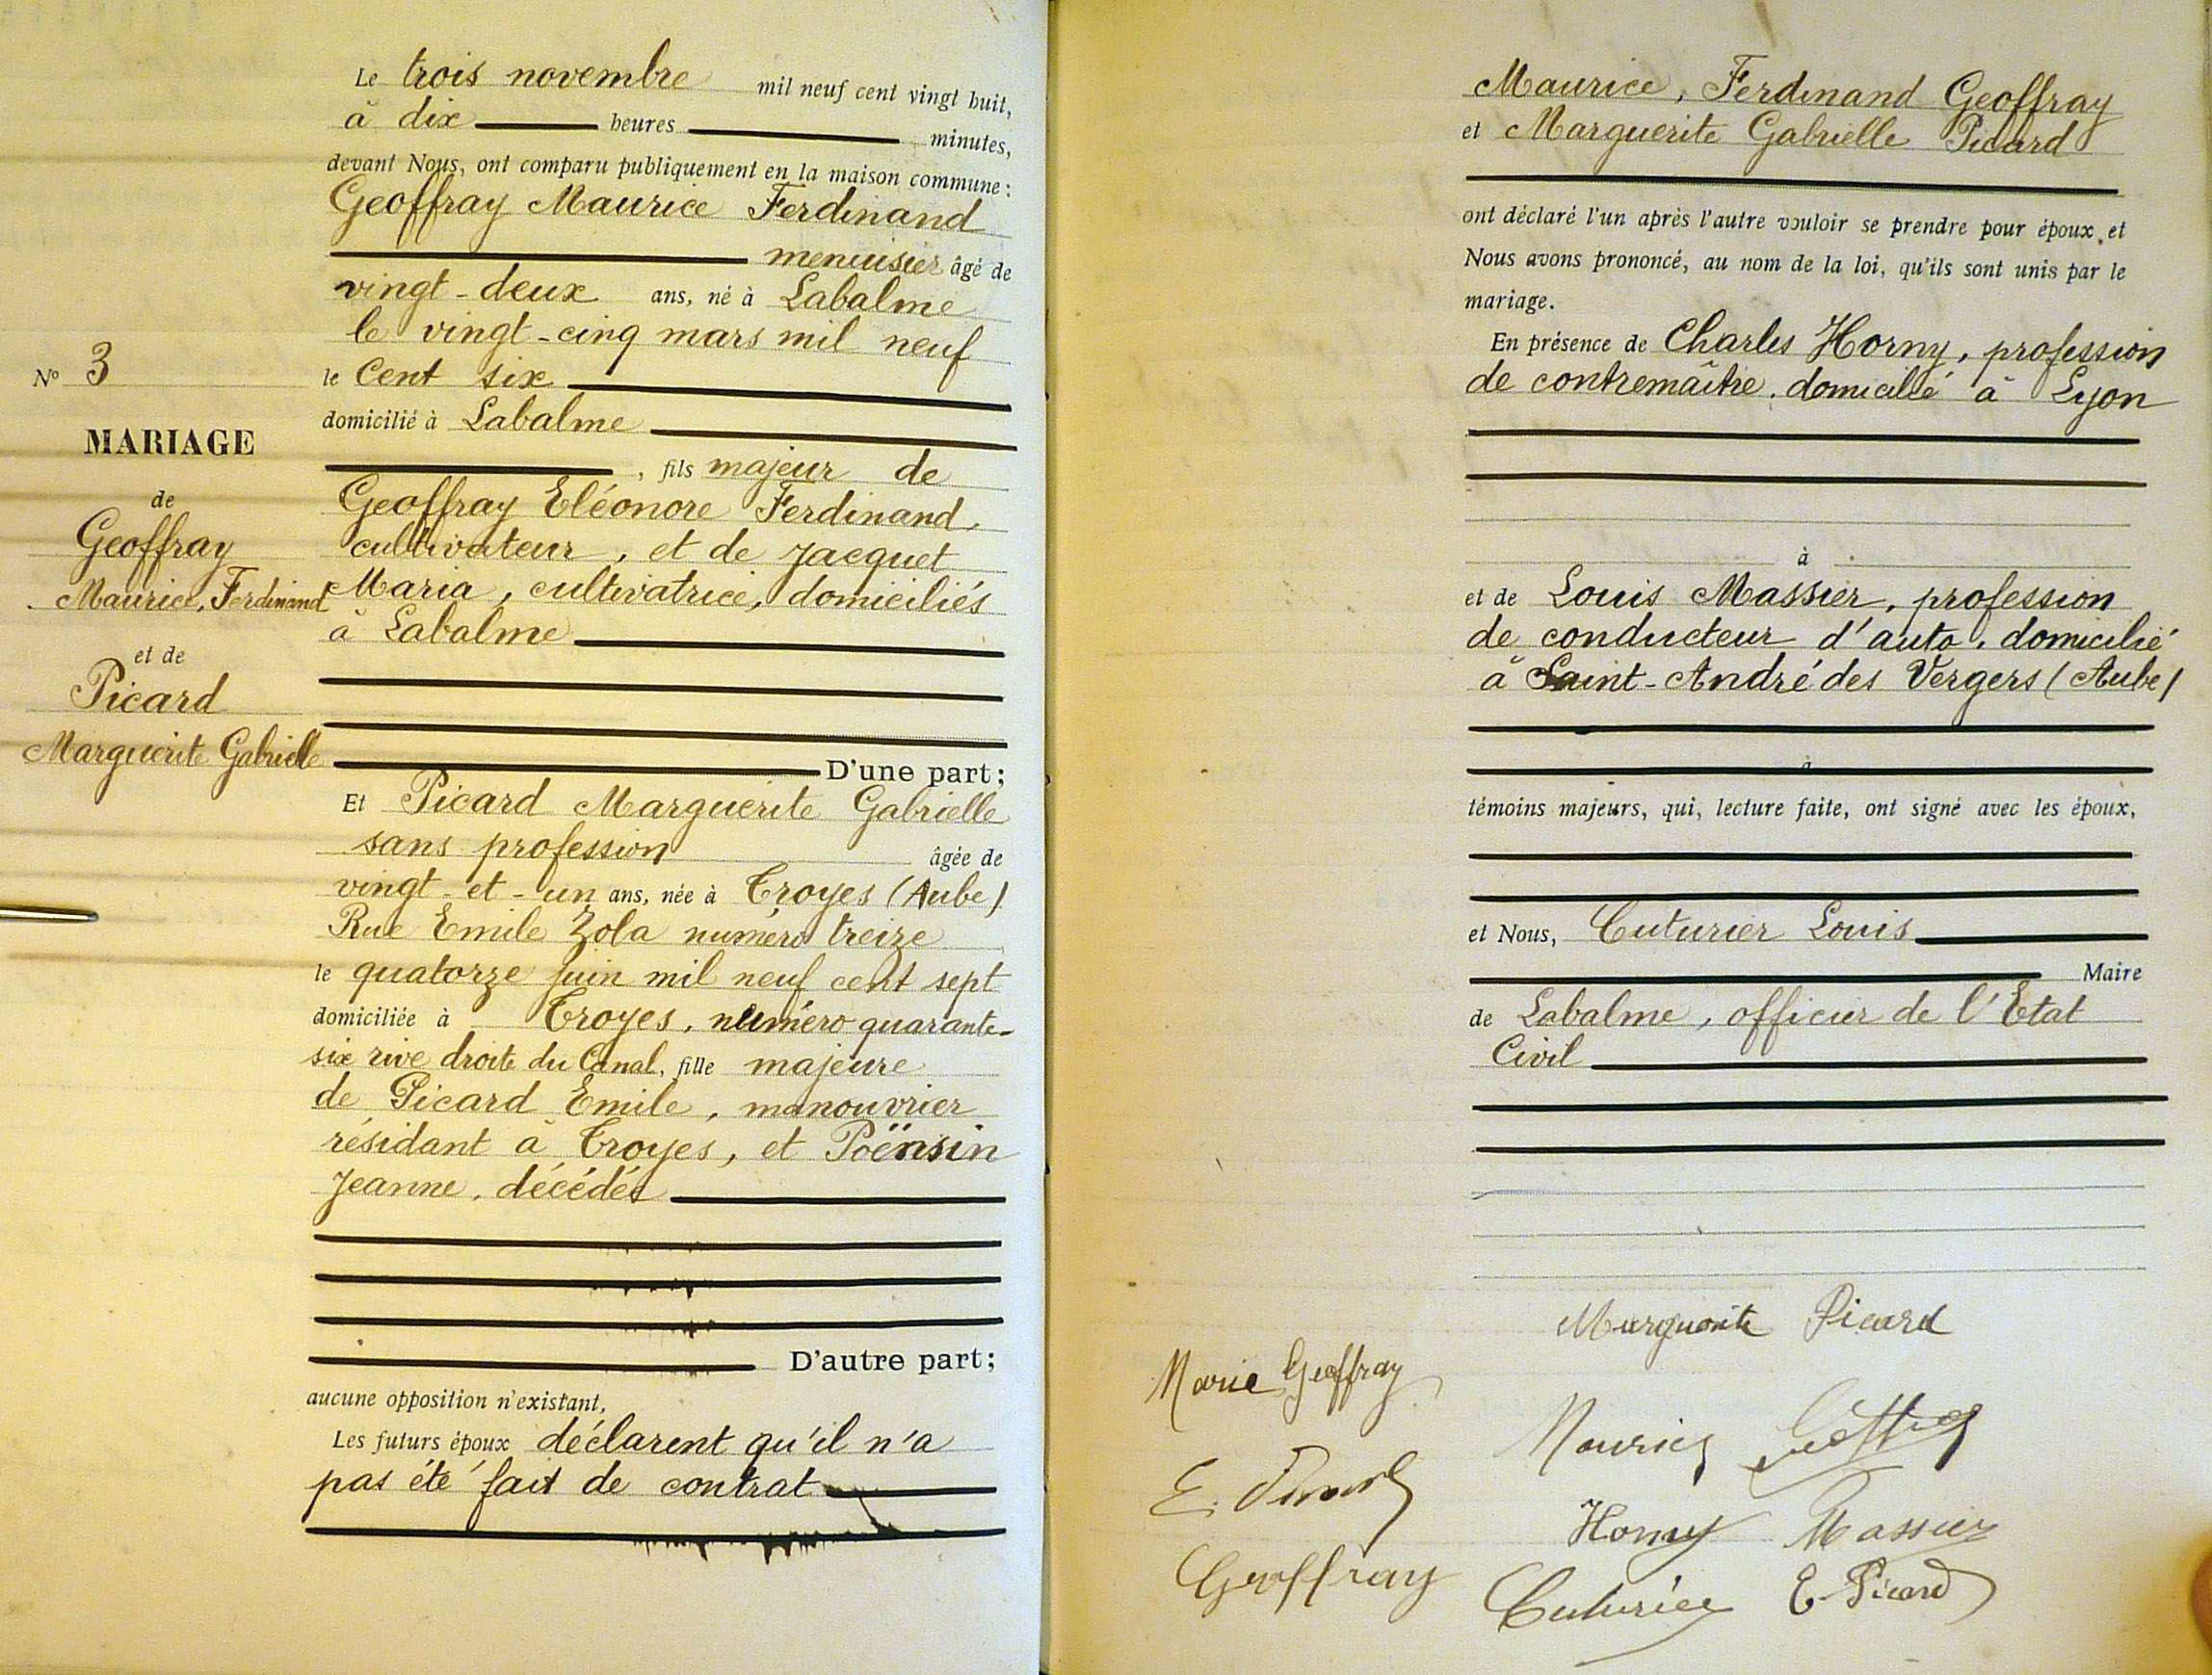 Le trois novembre mil neuf cent vingt huit,
à dix heures minutes,
devant Nous, ont comparu publiquement en la maison commune :
Geoffray Maurice Ferdinand
menuisier âgé de
vingt-deux ans, né à Labalme
le vingt-cinq mars mil neuf
le Cent six
domicilié à Labalme
, fils majeur de
Geoffray Eléonore Ferdinand,
cultivateur, et de Jacquet
Maria, cultivatrice, domiciliés
à Labalme
D'une part;
Et Picard Marguerite Gabrielle
sans profession âgée de
vingt-et-un ans, née à Troyes (Aube)
Rue Emile Zola numéro treize
le quatorze juin mil neuf cent sept
domiciliée à Troyes, numéro quarante-
six rive droite du Canal, fille majeure
de Picard Emile, manouvrier
résidant à Troyes, et Poënsin
Jeanne, décédée
D'autre part;
aucune opposition n'existant,
Les futurs époux déclarent qu'il n'a
pas été fait de contrat
N° 3
MARIAGE
de
Geoffray
Maurice, Ferdinand
et de
Picard
Marguerite Gabrielle
Maurice, Ferdinand Geoffray
et Marguerite Gabrielle Picard
ont déclaré l'un après l'autre vouloir se prendre pour époux et
Nous avons prononcé, au nom de la loi, qu'ils sont unis par le
mariage.
En présence de Charles Horny, profession
de contremaître, domicilié à Lyon
à
et de Louis Massier, profession
de conducteur d'auto, domicilié
à Saint-André des Vergers (Aube)
à
témoins majeurs, qui, lecture faite, ont signé avec les époux,
et Nous, Cuturier Louis
Maire
de Labalme, officier de l'Etat
Civil
Marguerite Picard
Marie Geoffray
Maurice Geoffray
E. Picard
Horny Massier
Geoffray
Cuturier E. Picard